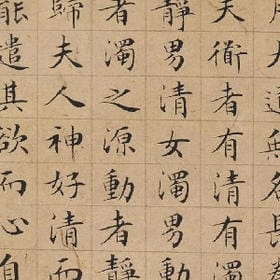 月大道無名長
夫衜者有清有濁
靜男清女濁男動
者濁之源動者靜
歸夫人神好清而
能遣其欲而心自